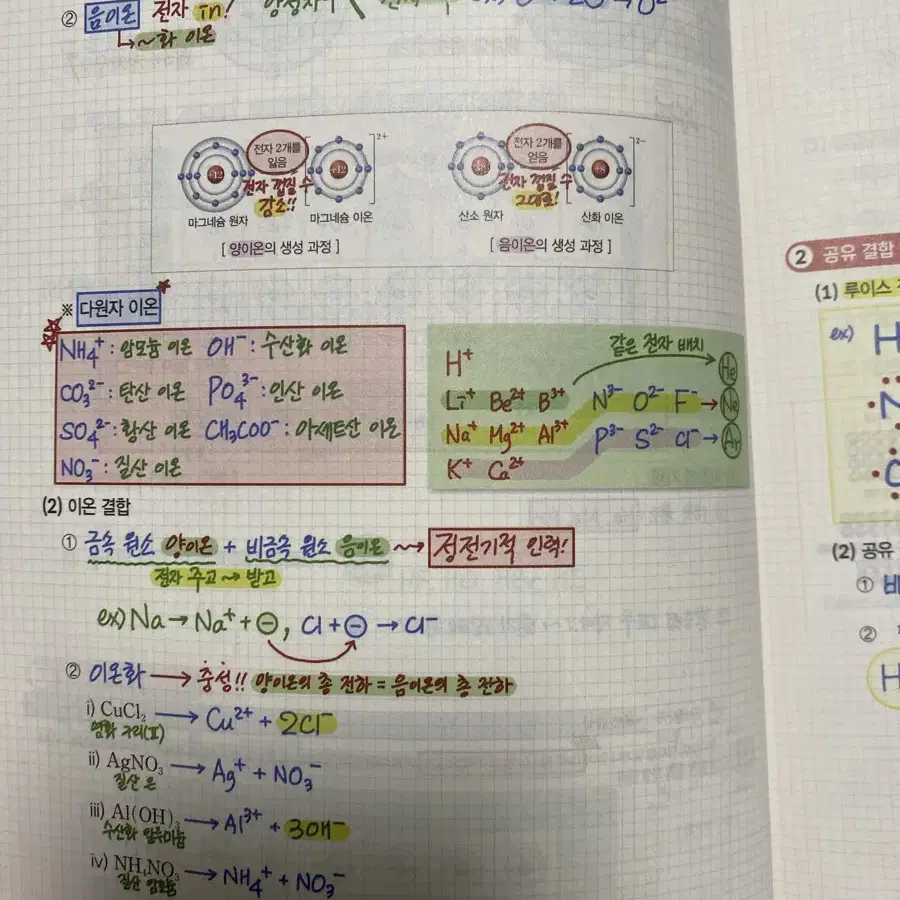 ② 음이온 전자 in!
↳ ~화 이온
전자 2개를 잃음
2+
전자 2개를 얻음
2-
+12
+12
+8
+8
전자 껍질 수 감소!!
전자 껍질 수 그대로!
마그네슘 원자 마그네슘 이온
산소 원자 산화 이온
[ 양이온의 생성 과정 ]
[ 음이온의 생성 과정 ]
※ 다원자 이온
NH₄⁺ : 암모늄 이온 OH⁻ : 수산화 이온
CO₃²⁻ : 탄산 이온 PO₄³⁻ : 인산 이온
SO₄²⁻ : 황산 이온 CH₃COO⁻ : 아세트산 이온
NO₃⁻ : 질산 이온
같은 전자 배치
H⁺ He
Li⁺ Be²⁺ B³⁺ N³⁻ O²⁻ F⁻ → Ne
Na⁺ Mg²⁺ Al³⁺ P³⁻ S²⁻ Cl⁻ → Ar
K⁺ Ca²⁺
(2) 이온 결합
① 금속 원소 양이온 + 비금속 원소 음이온 ⇝ 정전기적 인력!
전자 주고 → 받고
ex) Na → Na⁺ + ⊖, Cl + ⊖ → Cl⁻
② 이온화 → 중성!! 양이온의 총 전하 = 음이온의 총 전하
i) CuCl₂ → Cu²⁺ + 2Cl⁻
염화 구리(Ⅱ)
ii) AgNO₃ → Ag⁺ + NO₃⁻
질산 은
iii) Al(OH)₃ → Al³⁺ + 3OH⁻
수산화 알루미늄
iv) NH₄NO₃ → NH₄⁺ + NO₃⁻
질산 암모늄
② 공유 결합
(1) 루이스
ex) H
N
(2) 공유
① 비
②
H